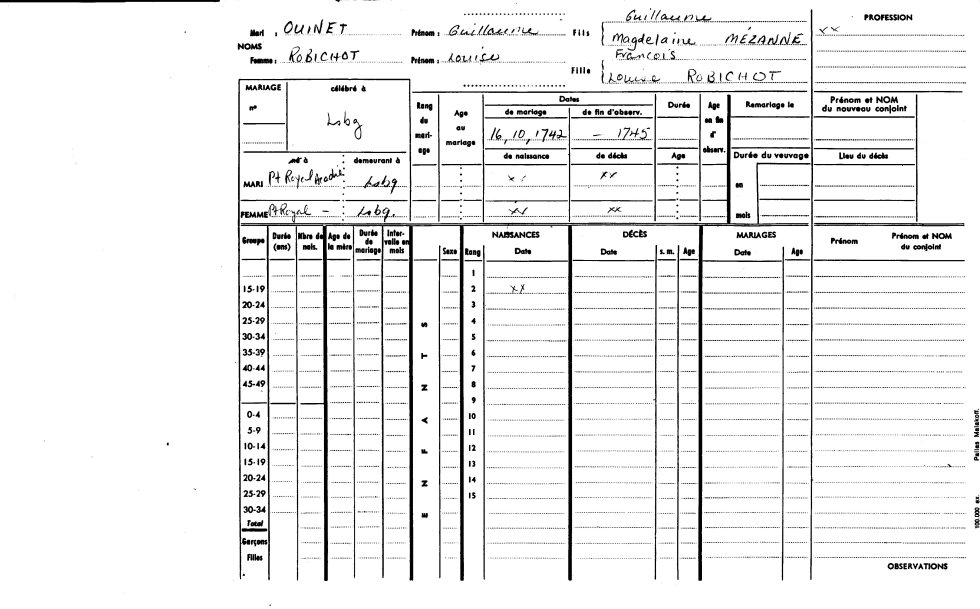 Guillaume PROFESSION
Mari : OUINET Prénom : Guillaume Fils Magdelaine MÉZANNE xx
NOMS François
Femme : ROBICHOT Prénom : Louise Fille Louise ROBICHOT
MARIAGE célébré à Rang du mariage Age au mariage Dates Durée Age en fin d'observ. Remariage le Prénom et NOM du nouveau conjoint
n° Lsbg de mariage de fin d'observ.
16, 10, 1742 - 1745
né à demeurant à de naissance de décès Age Durée du veuvage Lieu du décès
MARI Pt Royal Acadie Lsbg xx xx en
FEMME Pt Royal - Lsbg. xx xx mois
Groupe Durée (ans) Nbre de nais. Age de la mère Durée de mariage Intervalle en mois ENFANTS Sexe Rang NAISSANCES Date DÉCÈS Date s. m. Age MARIAGES Date Age Prénom Prénom et NOM du conjoint
1
15-19 2 xx
20-24 3
25-29 4
30-34 5
35-39 6
40-44 7
45-49 8
9
0-4 10
5-9 11
10-14 12
15-19 13
20-24 14
25-29 15
30-34
Total
Garçons
Filles
OBSERVATIONS
100.000 ex.